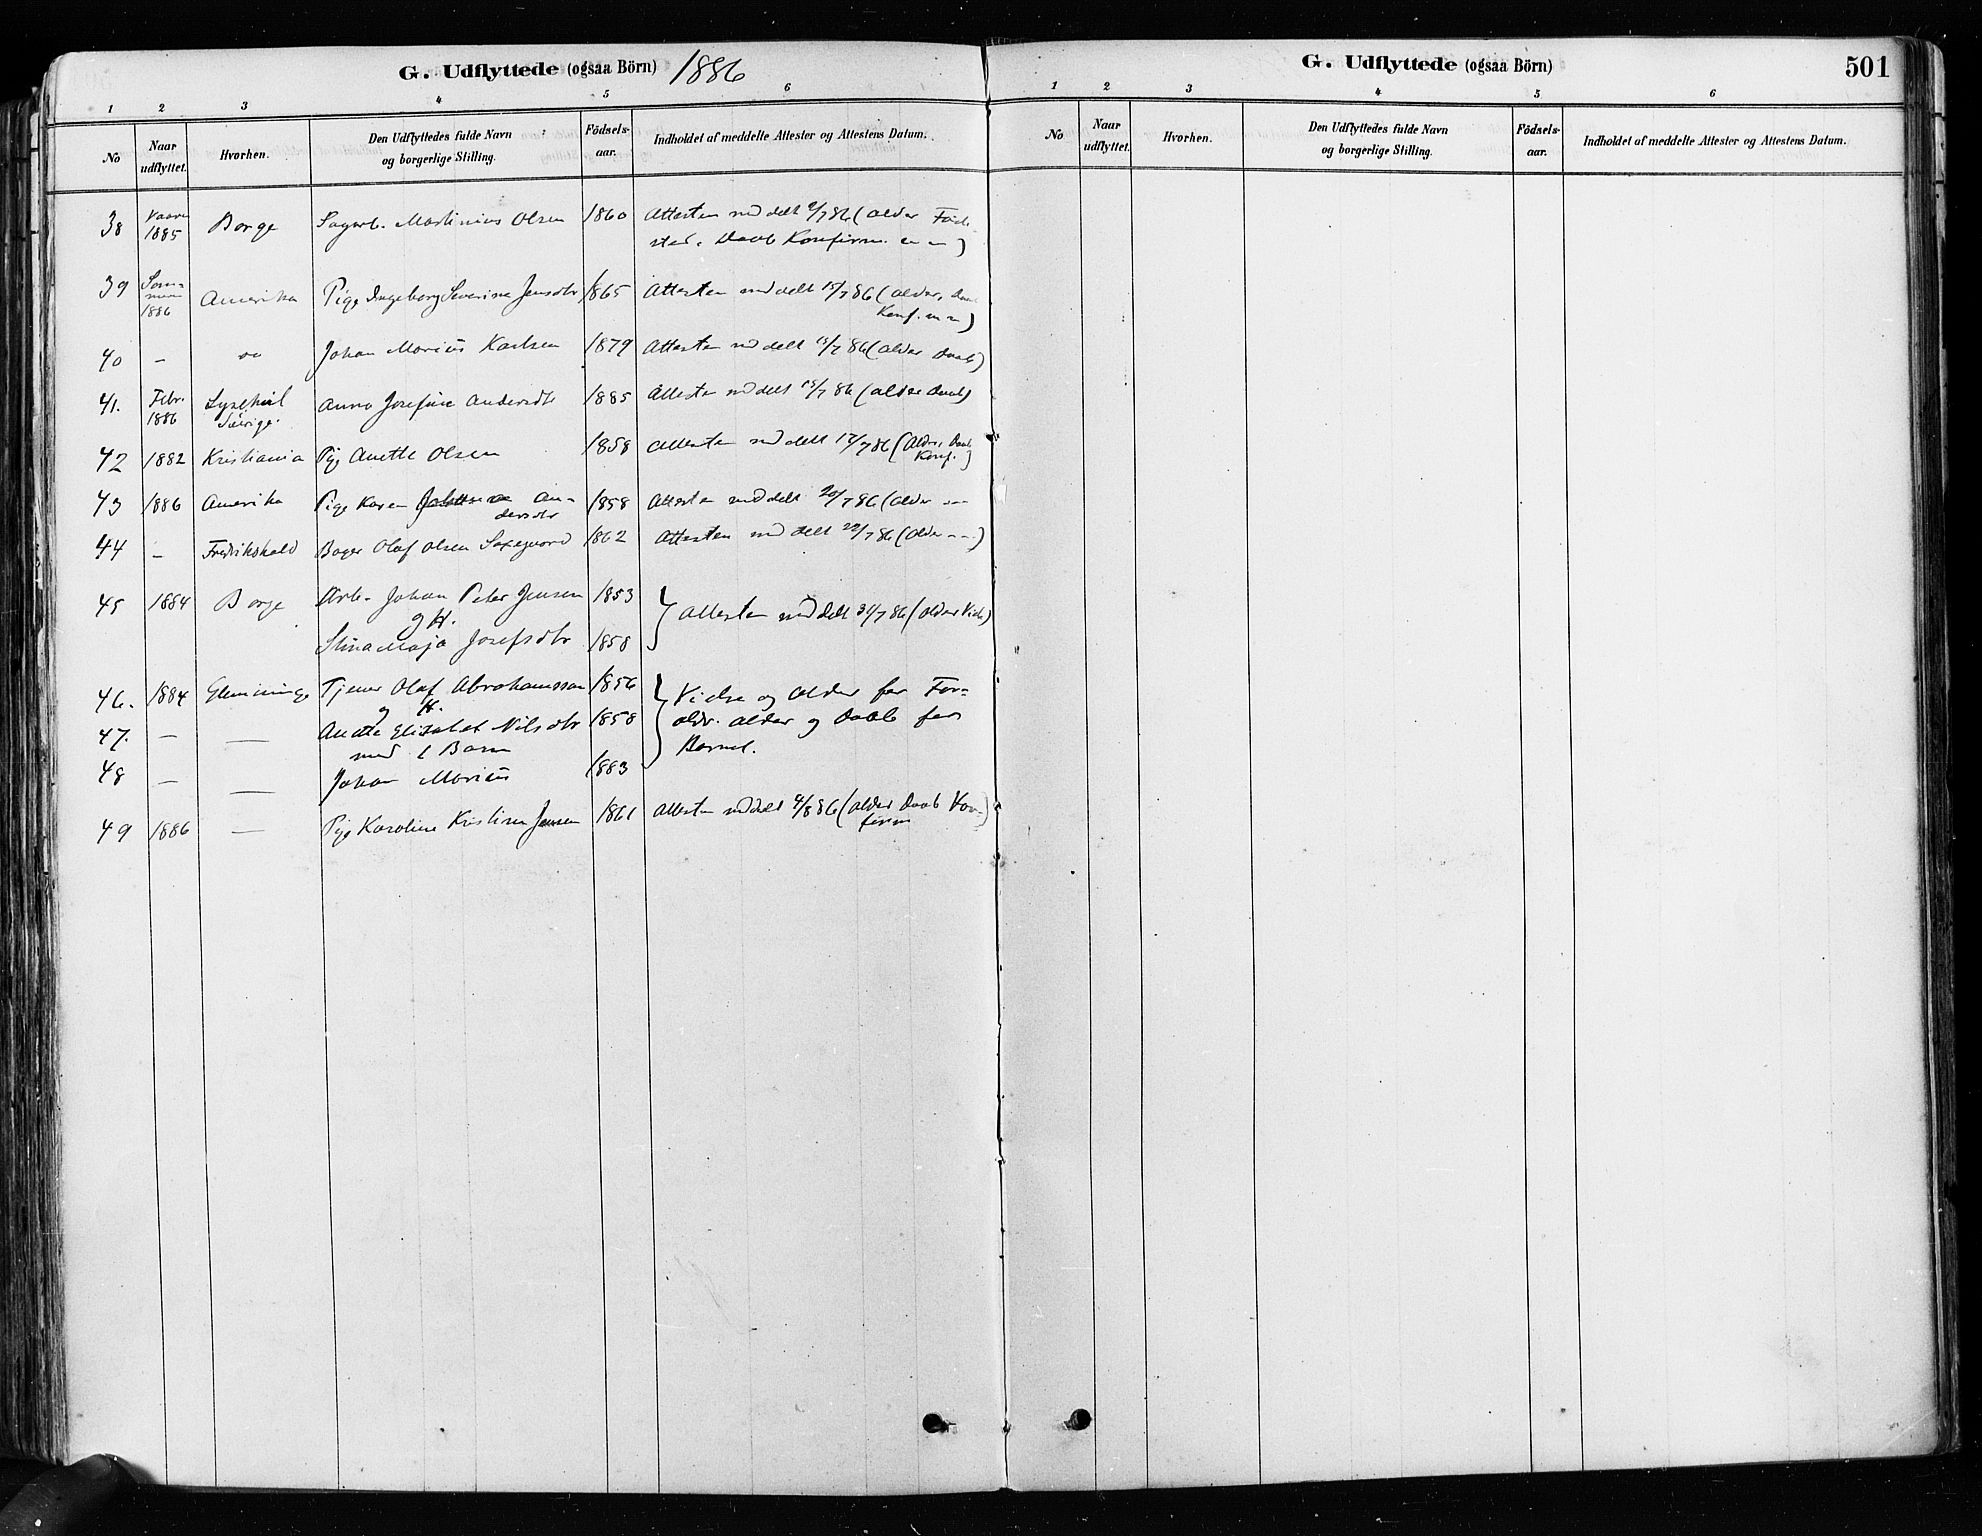 G. Udflyttede (ogsaa Börn) 1886
1 2 3 4 5 6
No Naar udflyttet. Hvorhen. Den Udflyttedes fulde Navn og borgerlige Stilling. Födsels-aar. Indholdet af meddelte Attester og Attestens Datum.
38 Vaare 1885 Borge Sagarb. Martinius Olsen 1860 Attesten meddelt 9/7 86 (alder Föde-
sted, Daab Konfirm. m m)
39 Som-mer 1886 Amerika Pige Ingeborg Severine Jensdtr 1865 Attesten meddelt 15/7 86 (alder, Daab
Konf. m m)
40 — " Johan Marius Karlsen 1879 Attesten meddelt 15/7 86 (alder Daab)
41. Febr. 1886 Lysekil Sverige. Anna Josefine Andersdtr 1885 Attesten meddelt 15/7 86 (alder Daab)
42 1882 Kristiania Pige Anette Olsen 1858 Attesten meddelt 17/7 86 (Alder, Daab
Konf.)
43 1886 Amerika Pige Karen An-
dersdtr 1858 Attesten meddelt 20/7 86 (alder — —
44 — Fredrikshald Bager Olaf Olsen 1862 Attesten meddelt 22/7 86 (alder — —)
45 1884 Borge Arb. Johan Peter Jensen 1853 Attesten meddelt 31/7 86 (alder Vielse)
og H.
Stina Maja Josefsdtr 1858
46. 1884 Glemminge Tjener Olaf Abrahamsson 1856 Vielse og Alder for For-
og H.
47. — — Anette Elisabet Nilsdtr 1858 ældr. alder og Daab for
med 1 Barn Barnet.
48 — — Johan Marius 1883
49 1886 — Pige Karoline Kristine Jensen 1861 Attesten meddelt 4/8 86 (alder Daab Kon-
firm)
G. Udflyttede (ogsaa Börn) 501
1 2 3 4 5 6
No Naar udflyttet. Hvorhen. Den Udflyttedes fulde Navn og borgerlige Stilling. Födsels-aar. Indholdet af meddelte Attester og Attestens Datum.